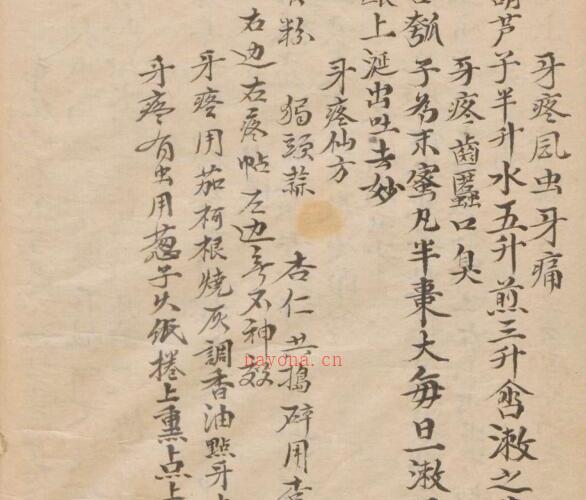 牙疼风虫牙痛
葫芦子半升水五升煎三升含漱之
牙疼齒䘌口臭
瓠子为末蜜凡半棗大每旦一漱
上涎出吐去妙
牙疼仙方
粉 獨頭蒜 杏仁 共搗碎用
右边右疼帖左边無不神效
牙疼用茄柯根燒灰調香油點牙
牙疼有虫用葱子火纸捲上熏点上
nayona.cn